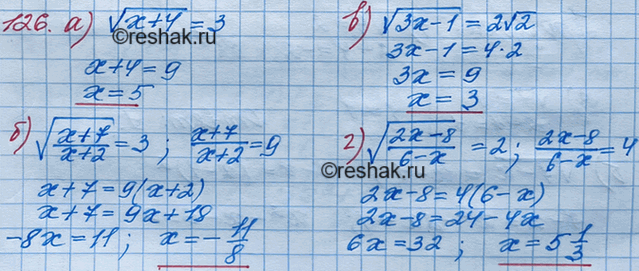 126. а) √(x+4) = 3
©reshak.ru
x+4 = 9
x = 5
б) √((x+7)/(x+2)) = 3 ; (x+7)/(x+2) = 9
x+7 = 9(x+2)
x+7 = 9x+18
-8x = 11 ; x = -11/8
в) √(3x-1) = 2√2
3x-1 = 4·2
3x = 9
©reshak.ru
x = 3
г) √((2x-8)/(6-x)) = 2 ; (2x-8)/(6-x) = 4
©reshak.ru
2x-8 = 4(6-x)
2x-8 = 24-4x
6x = 32 ; x = 5 1/3